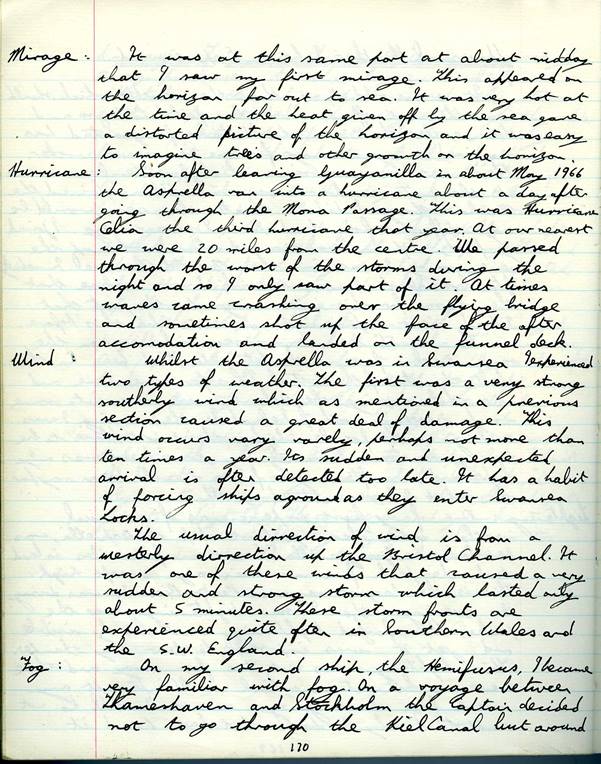 Mirage : It was at this same port at about midday
that I saw my first mirage. This appeared on
the horizon far out to sea. It was very hot at
the time and the heat given off by the sea gave
a distorted picture of the horizon and it was easy
to imagine trees and other growth on the horizon.
Hurricane : Soon after leaving Guayanilla in about May 1966
the Asprella ran into a hurricane about a day after
going through the Mona Passage. This was Hurricane
Celia the third hurricane that year. At our nearest
we were 20 miles from the centre. We passed
through the worst of the storms during the
night and so I only saw part of it. At times
waves came crashing over the flying bridge
and sometimes shot up the face of the after
accomodation and landed on the funnel deck.
Wind : Whilst the Asprella was in Swansea I experienced
two types of weather. The first was a very strong
southerly wind which as mentioned in a previous
section caused a great deal of damage. This
wind occurs vary rarely, perhaps not more than
ten times a year. Its sudden and unexpected
arrival is often detected too late. It has a habit
of forcing ships aground as they enter Swansea
Locks.
The usual dirrection of wind is from a
westerly dirrection up the Bristol Channel. It
was one of these winds that caused a very
sudden and strong storm which lasted only
about 5 minutes. These storm fronts are
experienced quite often in Southern Wales and
the S.W. England.
Fog : On my second ship, the Hemifusus, I became
very familiar with fog. On a voyage between
Thameshaven and Stockholm the Captain decided
not to go through the Kiel Canal but around
170